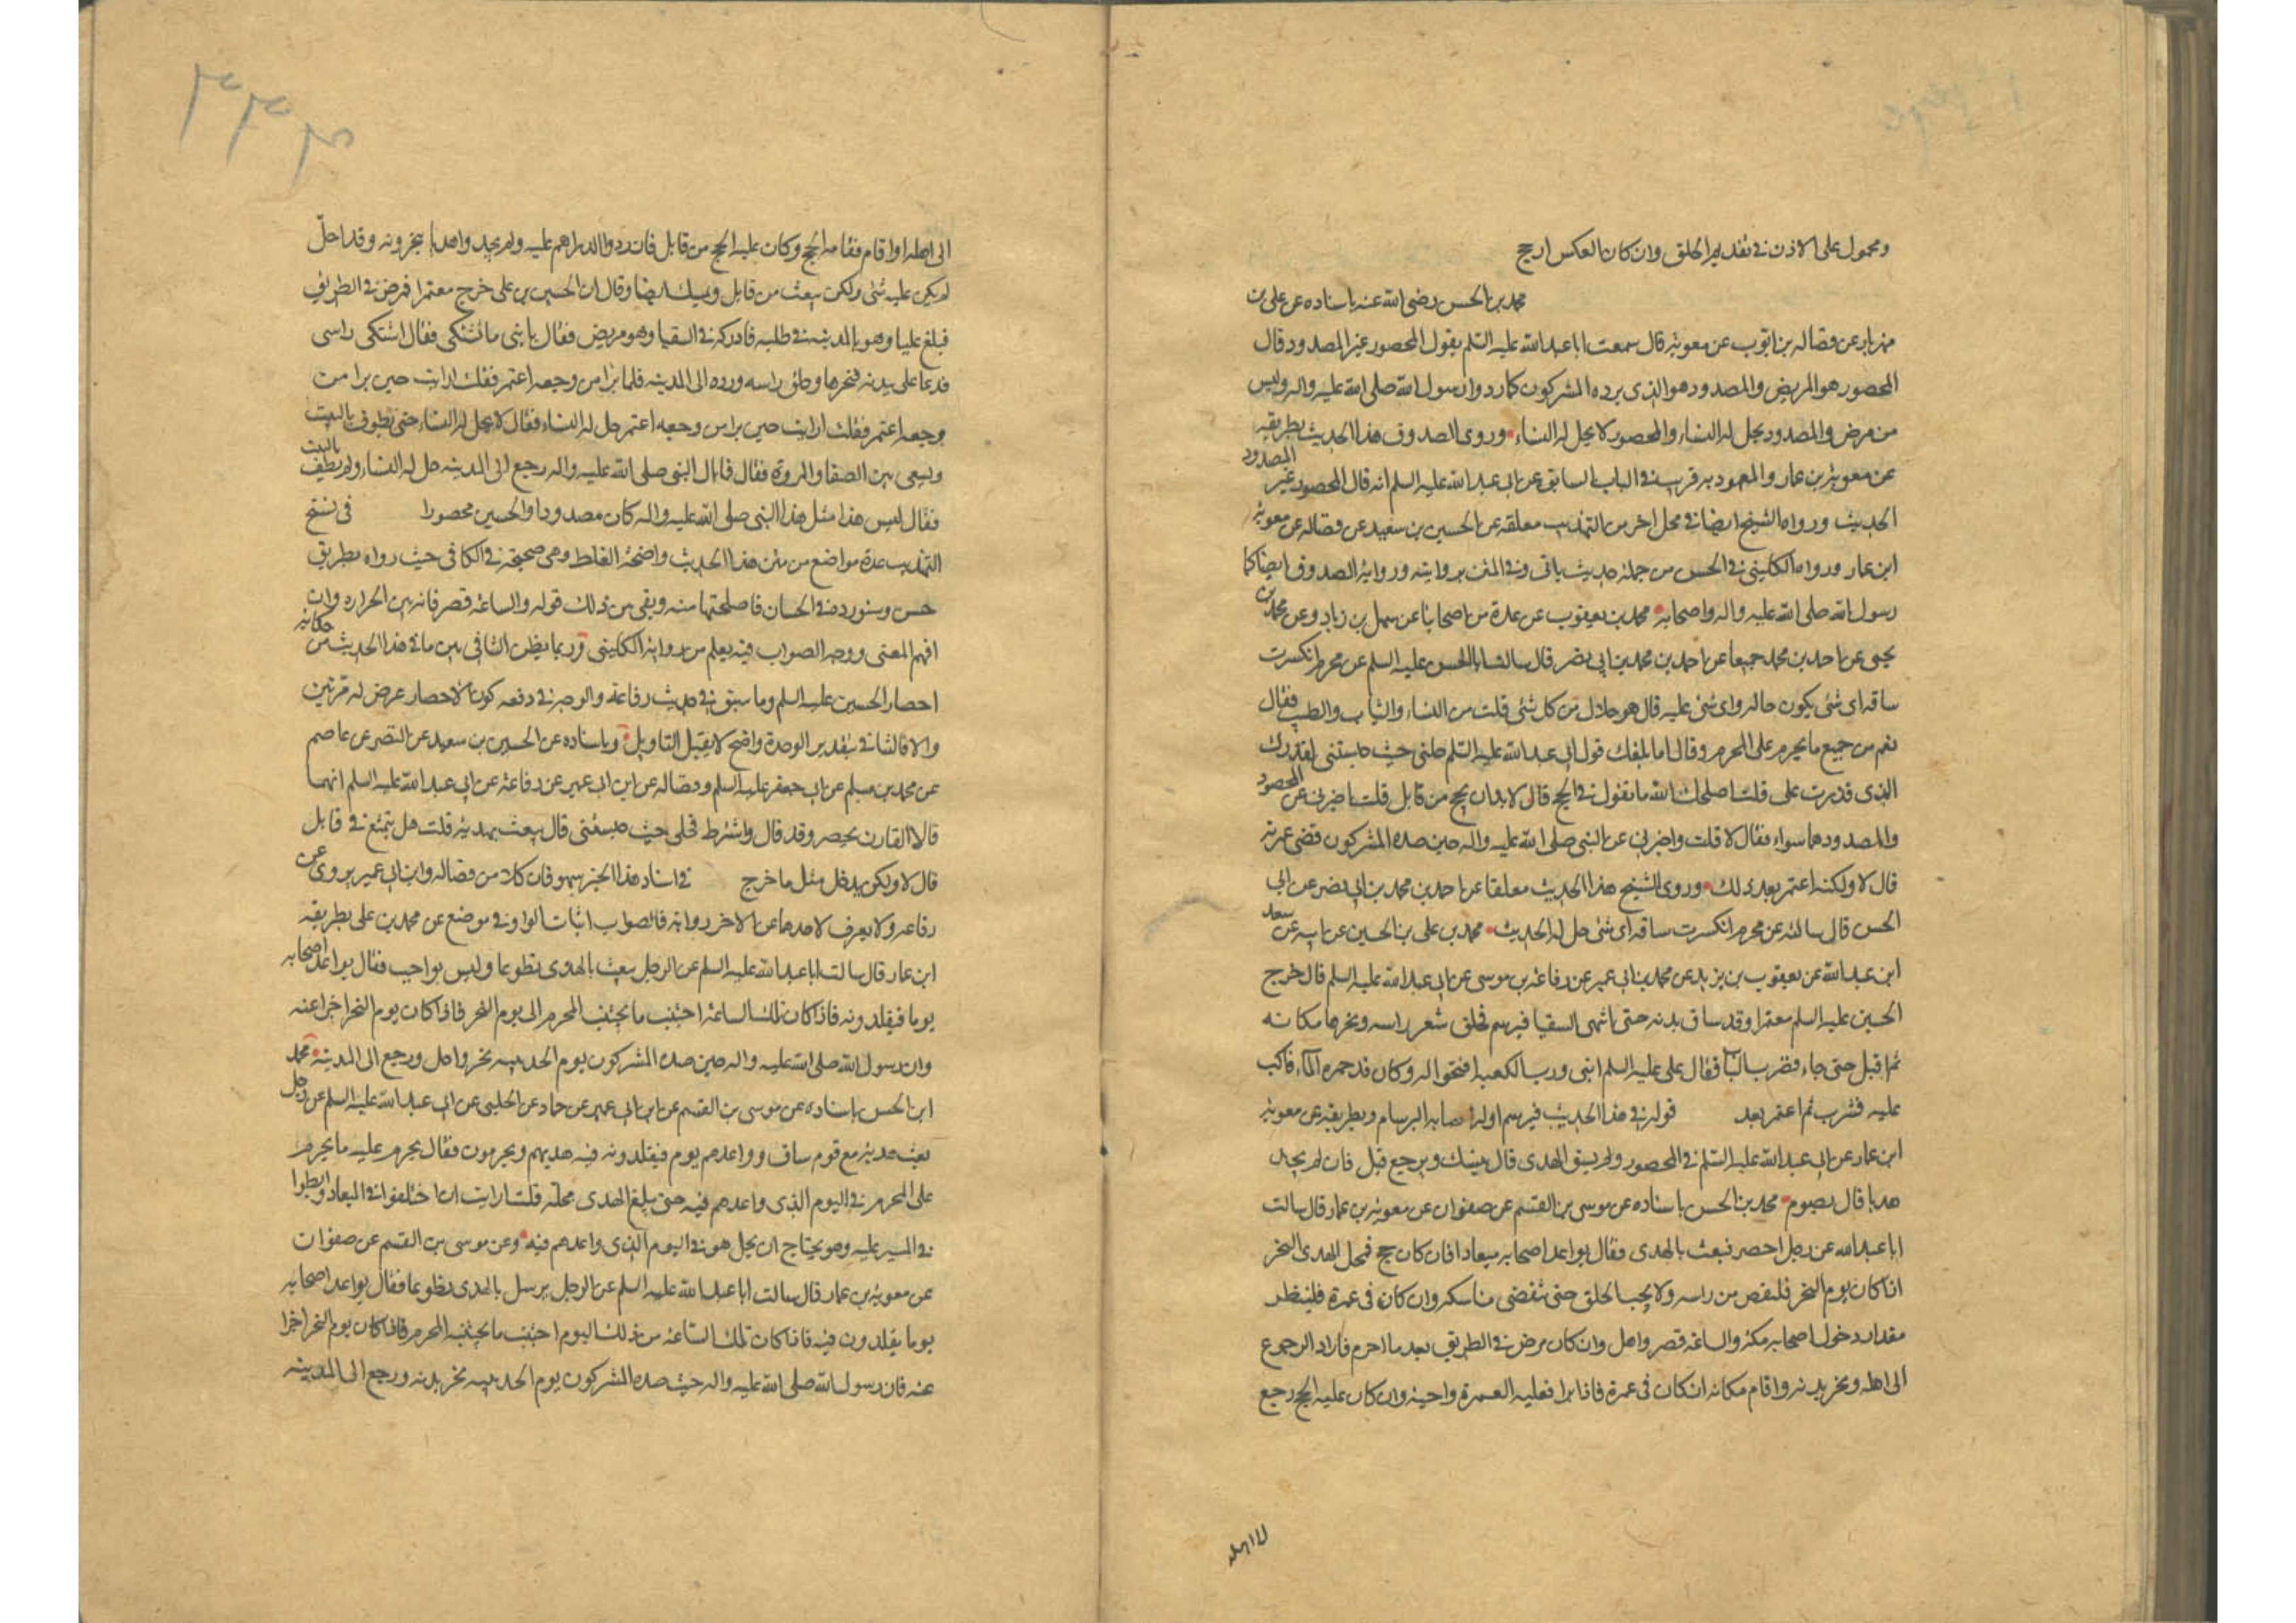 ومحمول على الاذن في تقديم الحلق وان كان العكس ارجح
محمد بن الحسن رضي الله عنه باسناده عن علي بن
مهزيار عن فضاله بن ايوب عن معويه قال سمعت ابا عبد الله عليه السلم يقول المحصور غير المصدود قال
المحصور هو المريض والمصدود هو الذي يرده المشركون كما ردوا رسول الله صلى الله عليه واله وليس
من مرض والمصدود يحل له النساء والمحصور لا يحل له النساء وروى الصدوق هذا الحديث بطريقه
عن معويه بن عمار والمعهود به قريب في الباب السابق عن ابي عبد الله عليه السلم انه قال المحصور غير المصدود
الحديث ورواه الشيخ ايضا في محل اخر من التهذيب معلقه عن الحسين بن سعيد عن فضاله عن معويه
ابن عمار ورواه الكليني في الحسن من جملة حديث ياتي وفي المتن بروايته ورواية الصدوق ايضا كما
رسول الله صلى الله عليه واله واصحابه محمد بن يعقوب عن عدة من اصحابنا عن سهل بن زياد وعن محمد بن
يحيى عن احمد بن محمد جميعا عن احمد بن محمد بن ابي نصر قال سالت ابا الحسن عليه السلم عن محرم انكسرت
ساقه اى شئ يكون حاله واى شئ عليه قال هو حلال من كل شئ قلت من النساء والثياب والطيب فقال
نعم من جميع ما يحرم على المحرم وقال اما بلغك قول ابي عبد الله عليه السلم حلني حيث حبستني لقدرك
الذى قدرت على قلت اصلحك الله ما تقول في الحج قال لا بد ان يحج من قابل قلت اخبرني عن المحصور
والمصدود هما سواء فقال لا قلت واخبرني عن النبي صلى الله عليه واله حين صده المشركون قضى عمرته
قال لا ولكنه اعتمر بعد ذلك وروى الشيخ هذا الحديث معلقا عن احمد بن محمد بن ابي نصر عن ابي
الحسن قال سالته عن محرم انكسرت ساقه اى شئ حل له الحديث محمد بن علي بن الحسين عن ابيه عن سعد
ابن عبد الله عن يعقوب بن يزيد عن محمد بن ابي عمير عن رفاعه بن موسى عن ابي عبد الله عليه السلم قال خرج
الحسين عليه السلم معتمرا وقد ساق بدنه حتى انتهى السقيا فبرسم فحلق شعر راسه ونحرها مكانه
ثم اقبل حتى جاء فضرب الباب فقال علي عليه السلم ابني ورب الكعبه افتحوا له وكان قد حمو له الماء فاكب
عليه فشرب ثم اعتمر بعد قوله في هذا الحديث فبرسم اوله اصابه البرسام وبطريقه عن معويه
ابن عمار عن ابي عبد الله عليه السلم في المحصور ولم يسق الهدى قال ينسك ويرجع قيل فان لم يجد
هديا قال يصوم محمد بن الحسن باسناده عن موسى بن القسم عن صفوان عن معويه بن عمار قال سالت
ابا عبد الله عن رجل احصر فبعث بالهدى فقال يواعد اصحابه ميعادا فان كان حج فمحل الهدى النحر
اذا كان يوم النحر فليقص من راسه ولا يجب الحلق حتى تقضى مناسكه وان كان في عمرة فلينظر
مقدار دخول اصحابه مكة والساعة قصر واحل وان كان مرض في الطريق بعد ما احرم فاراد الرجوع
الى اهله ونحر بدنه واقام مكانه ان كان في عمرة فاذا برا فعليه العمرة واجبة وان كان عليه الحج رجع
الى اهله
٣٣٣
الى اهله او اقام ففاته الحج وكان عليه الحج من قابل فان ردوا الدراهم عليه ولم يجد واهديا ينحرونه وقد احل
لم يكن عليه شئ ولكن يبعث من قابل ويمسك ايضا وقال ان الحسين بن علي خرج معتمرا فمرض في الطريق
فبلغ عليا وهو بالمدينه في طلبه فادركه في السقيا وهو مريض فقال يا بني ما تشتكي فقال اشتكي راسي
فدعا علي ببدنه فنحرها وحلق راسه ورده الى المدينه فلما برا من وجعه اعتمر فقلت ارايت حين برا من
وجعه اعتمر فقلت ارايت حين برا من وجعه اعتمر حل له النساء فقال لا يحل له النساء حتى يطوف بالبيت
ويسعى بين الصفا والمروة فقال فما بال النبي صلى الله عليه واله رجع الى المدينه حل له النساء ولم يطف بالبيت
فقال ليس هذا مثل هذا النبي صلى الله عليه واله كان مصدودا والحسين محصورا في نسخ
التهذيب عدة مواضع من متن هذا الحديث واضحة الغلط وهي صحيحة في الكافي حيث رواه بطريق
حسن وسنورده في الحسان فاصلحتها منه وبقي من ذلك قوله والساعة قصر فانه بين الحزازه وان
افهم المعنى ووجه الصواب فيه يعلم من رواية الكليني وربما يظن التنافي بين ما في هذا الحديث من حكاية
احصار الحسين عليه السلم وما سبق في حديث رفاعة والوجه في دفعه كون الاحصار عرض له مرتين
والا فالتنافي بتقدير الوحدة واضح لا يقبل التاويل وباسناده عن الحسين بن سعيد عن النضر عن عاصم
عن محمد بن مسلم عن ابي جعفر عليه السلم وفضاله عن ابن ابي عمير عن رفاعة عن ابي عبد الله عليه السلم انهما
قالا القارن يحصر وقد قال واشترط فحلني حيث حبستني قال يبعث بهديه قلت هل يتمتع في قابل
قال لا ولكن يدخل مثل ما خرج في اسناد هذا الخبر سهو فان كلا من فضاله وابن ابي عمير يروى عن
رفاعه ولا يعرف لاحدهما عن الاخر رواية فالصواب اثبات الواو وفي موضع عن محمد بن علي بطريقه
ابن عمار قال سالت ابا عبد الله عليه السلم عن الرجل يبعث بالهدى تطوعا وليس بواجب فقال يواعد اصحابه
يوما فيقلدونه فاذا كان تلك الساعة اجتنب ما يجتنب المحرم الى يوم النحر فاذا كان يوم النحر اجزا عنه
وان رسول الله صلى الله عليه واله حين صده المشركون يوم الحديبيه نحر واحل ورجع الى المدينة محمد
ابن الحسن باسناده عن موسى بن القسم عن ابن ابي عمير عن حماد عن الحلبي عن ابي عبد الله عليه السلم عن رجل
بعث بهديه مع قوم ساق وواعدهم يوم فيقلدونه فيه هديهم ويحرمون فقال يحرم عليه ما يحرم
على المحرم في اليوم الذى واعدهم فيه حتى يبلغ الهدى محله قلت ارايت ان اختلفوا في الميعاد وابطوا
في المسير عليه وهو يحتاج ان يحل هو في اليوم الذى واعدهم فيه وعن موسى بن القسم عن صفوان
عن معويه بن عمار قال سالت ابا عبد الله عليه السلم عن الرجل يرسل بالهدى تطوعا فقال يواعد اصحابه
يوما يقلدون فيه فاذا كان تلك الساعة من ذلك اليوم اجتنب ما يجتنبه المحرم فاذا كان يوم النحر اجزا
عنه فان رسول الله صلى الله عليه واله حيث صده المشركون يوم الحديبيه نحر بدنه ورجع الى المدينه